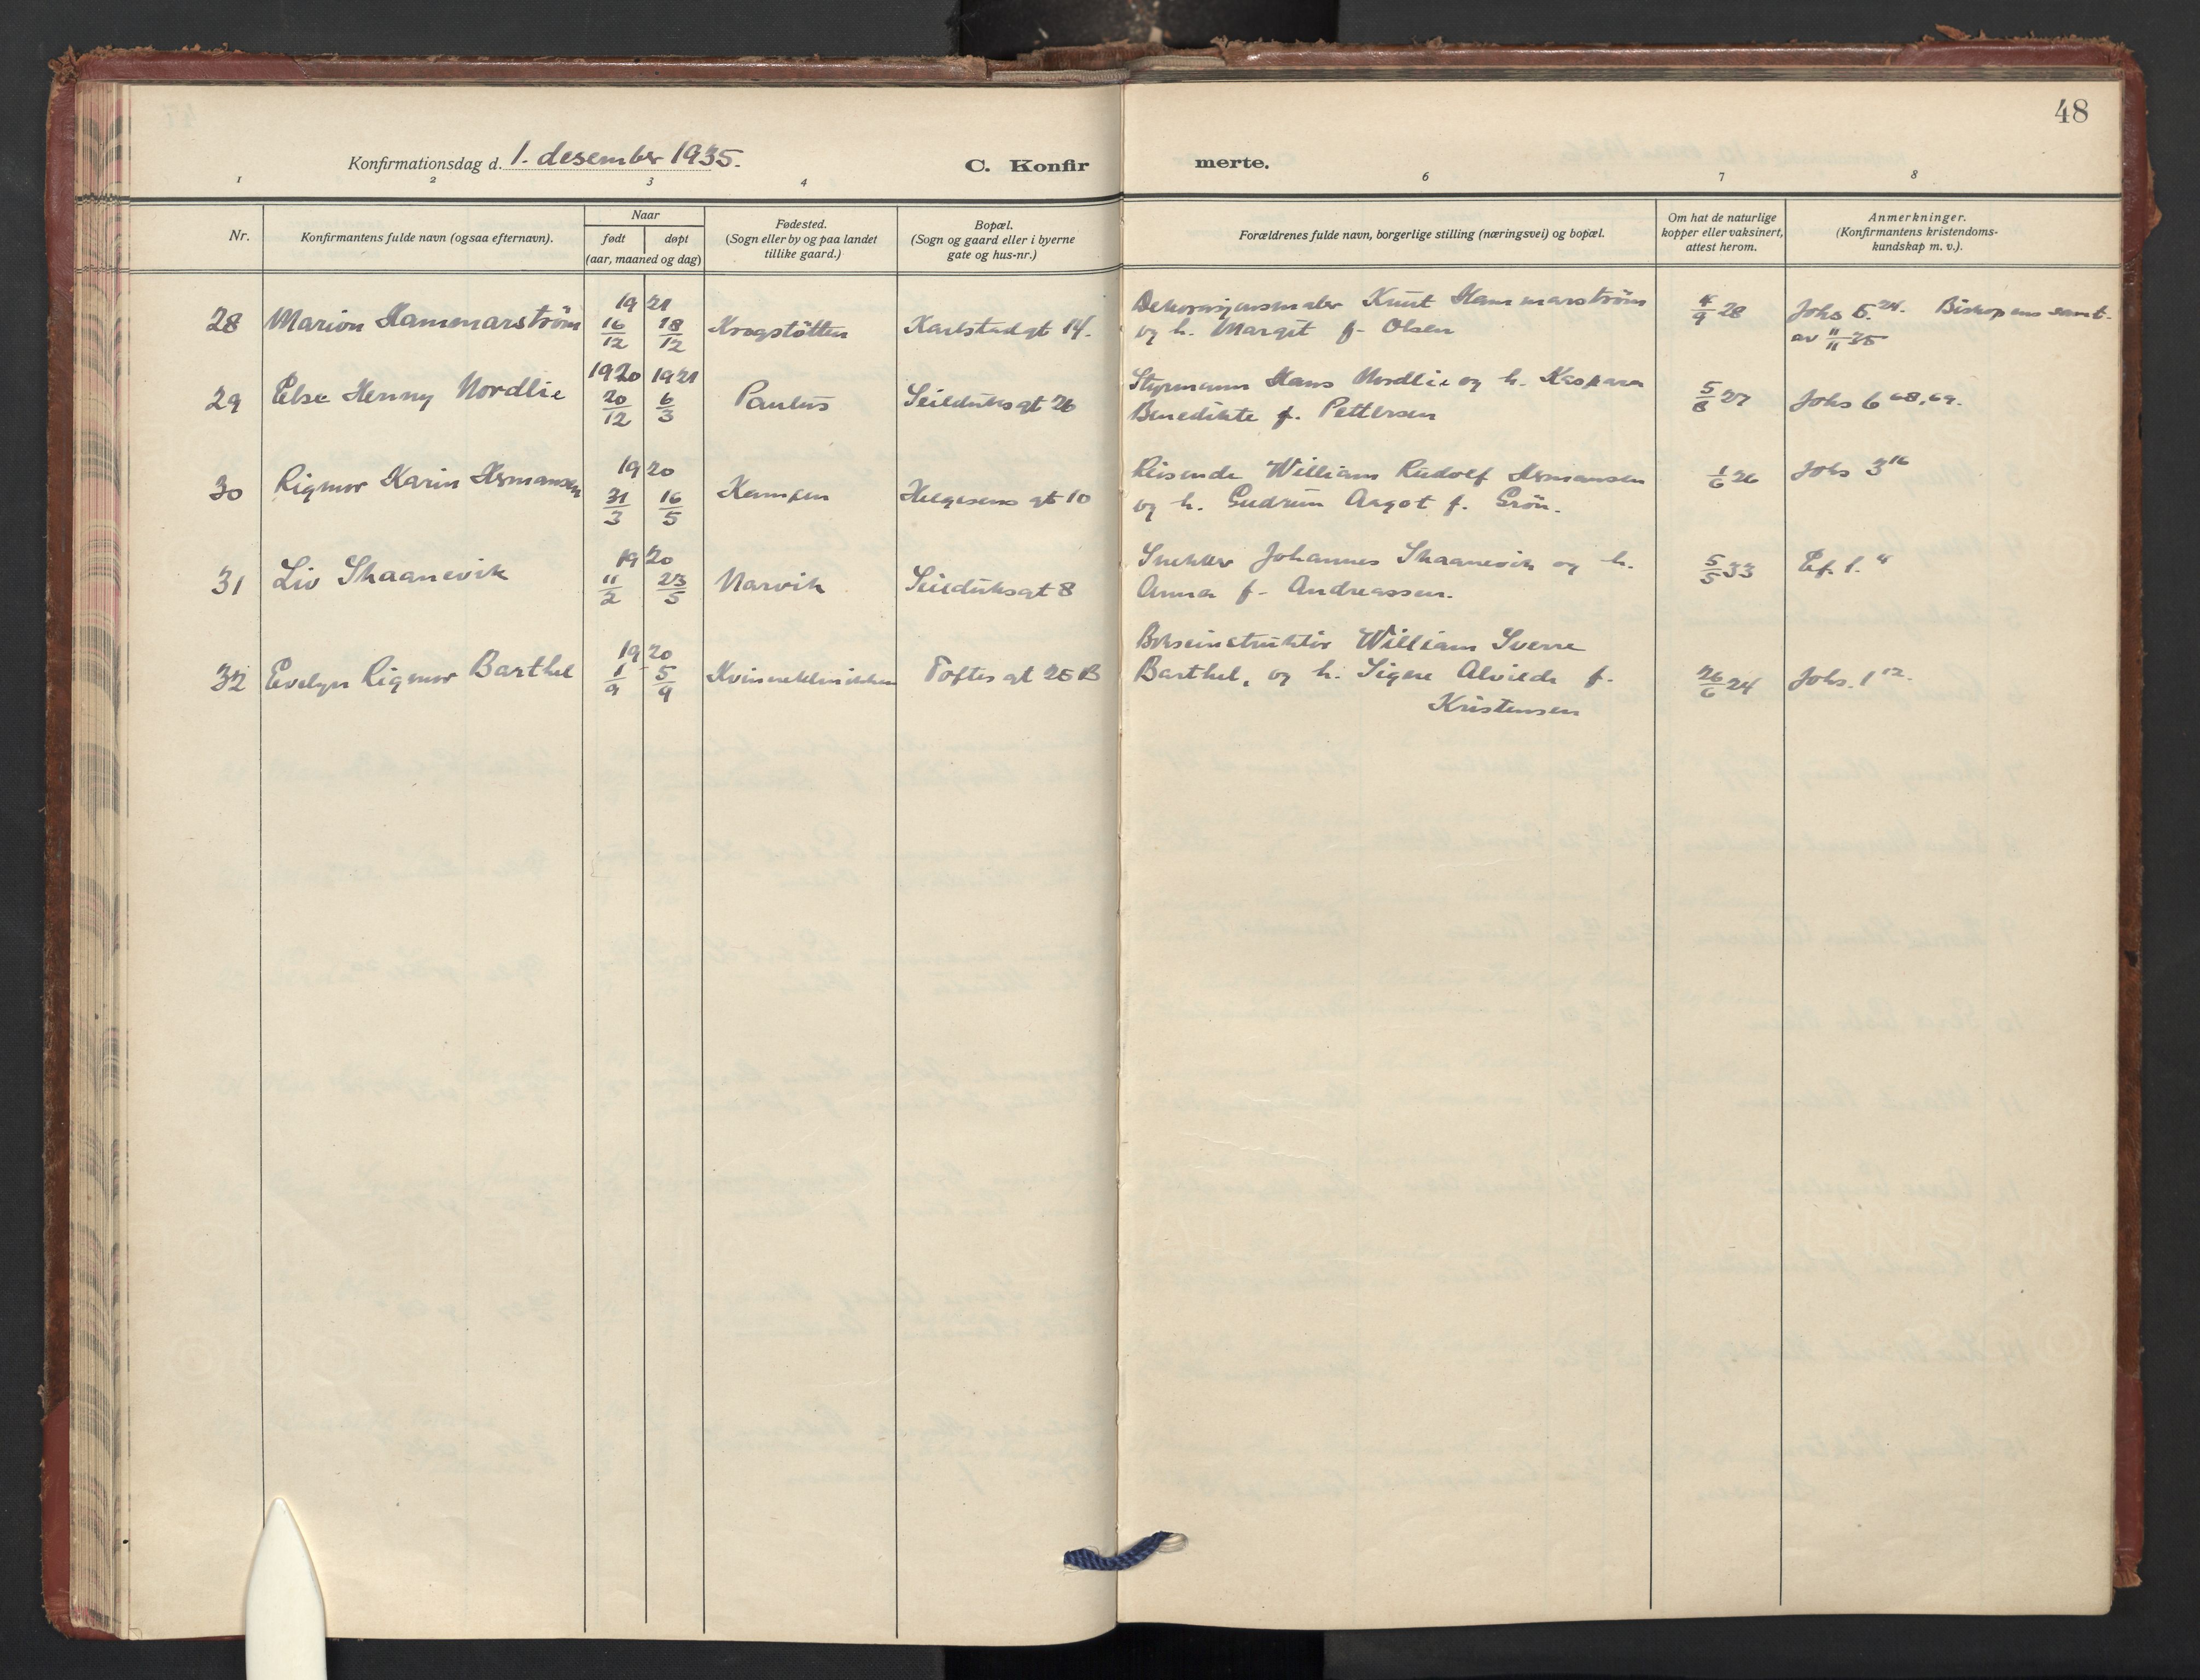 48
Konfirmationsdag d. 1. desember 1935.
C. Konfir merte.
1 2 3 4 6 7 8
Nr.
Konfirmantens fulde navn (ogsaa efternavn).
Naar
født døpt
(aar, maaned og dag)
Fødested.
(Sogn eller by og paa landet
tillike gaard.)
Bopæl.
(Sogn og gaard eller i byerne
gate og hus-nr.)
Forældrenes fulde navn, borgerlige stilling (næringsvei) og bopæl.
Om hat de naturlige
kopper eller vaksinert,
attest herom.
Anmerkninger.
(Konfirmantens kristendoms-
kundskap m. v.).
28 Marion Hammarström 19 21 16/12 18/12 Krogstøtten Karlstadgt 14.
Dekorasjonsmaler Knut Hammarström
og h. Margit f. Olsen
4/9 28
Johs 5.24. Biskopens samt.
av 11/11 35
29 Else Henny Nordlie 1920 1921 20/12 6/3 Paulus Seilduksgt 26
Styrmann Hans Nordlie og h. Kaspara
Benedikte f. Pettersen
5/8 27
Johs 6 68,69.
30 Rigmor Karin Hermansen 19 20 31/3 16/5 Kampen Helgesens gt 10
Reisende William Rudolf Hermansen
og h. Gudrun Aagot f. Grön.
1/6 26
Johs 3 16
31 Liv Skaanevik 19 20 11/2 23/5 Narvik Seilduksgt 8
Snekker Johannes Skaanevik og h.
Anna f. Andreassen.
5/5 33
Ef. 1.
32 Evelyn Rigmor Barthel 19 20 1/9 5/9 Kvinneklinikken Toftes gt 25 B
Bokseinstruktör William Sverre
Barthel, og h. Signe Alvilde f.
Kristensen
26/6 24
Johs. 1 12.